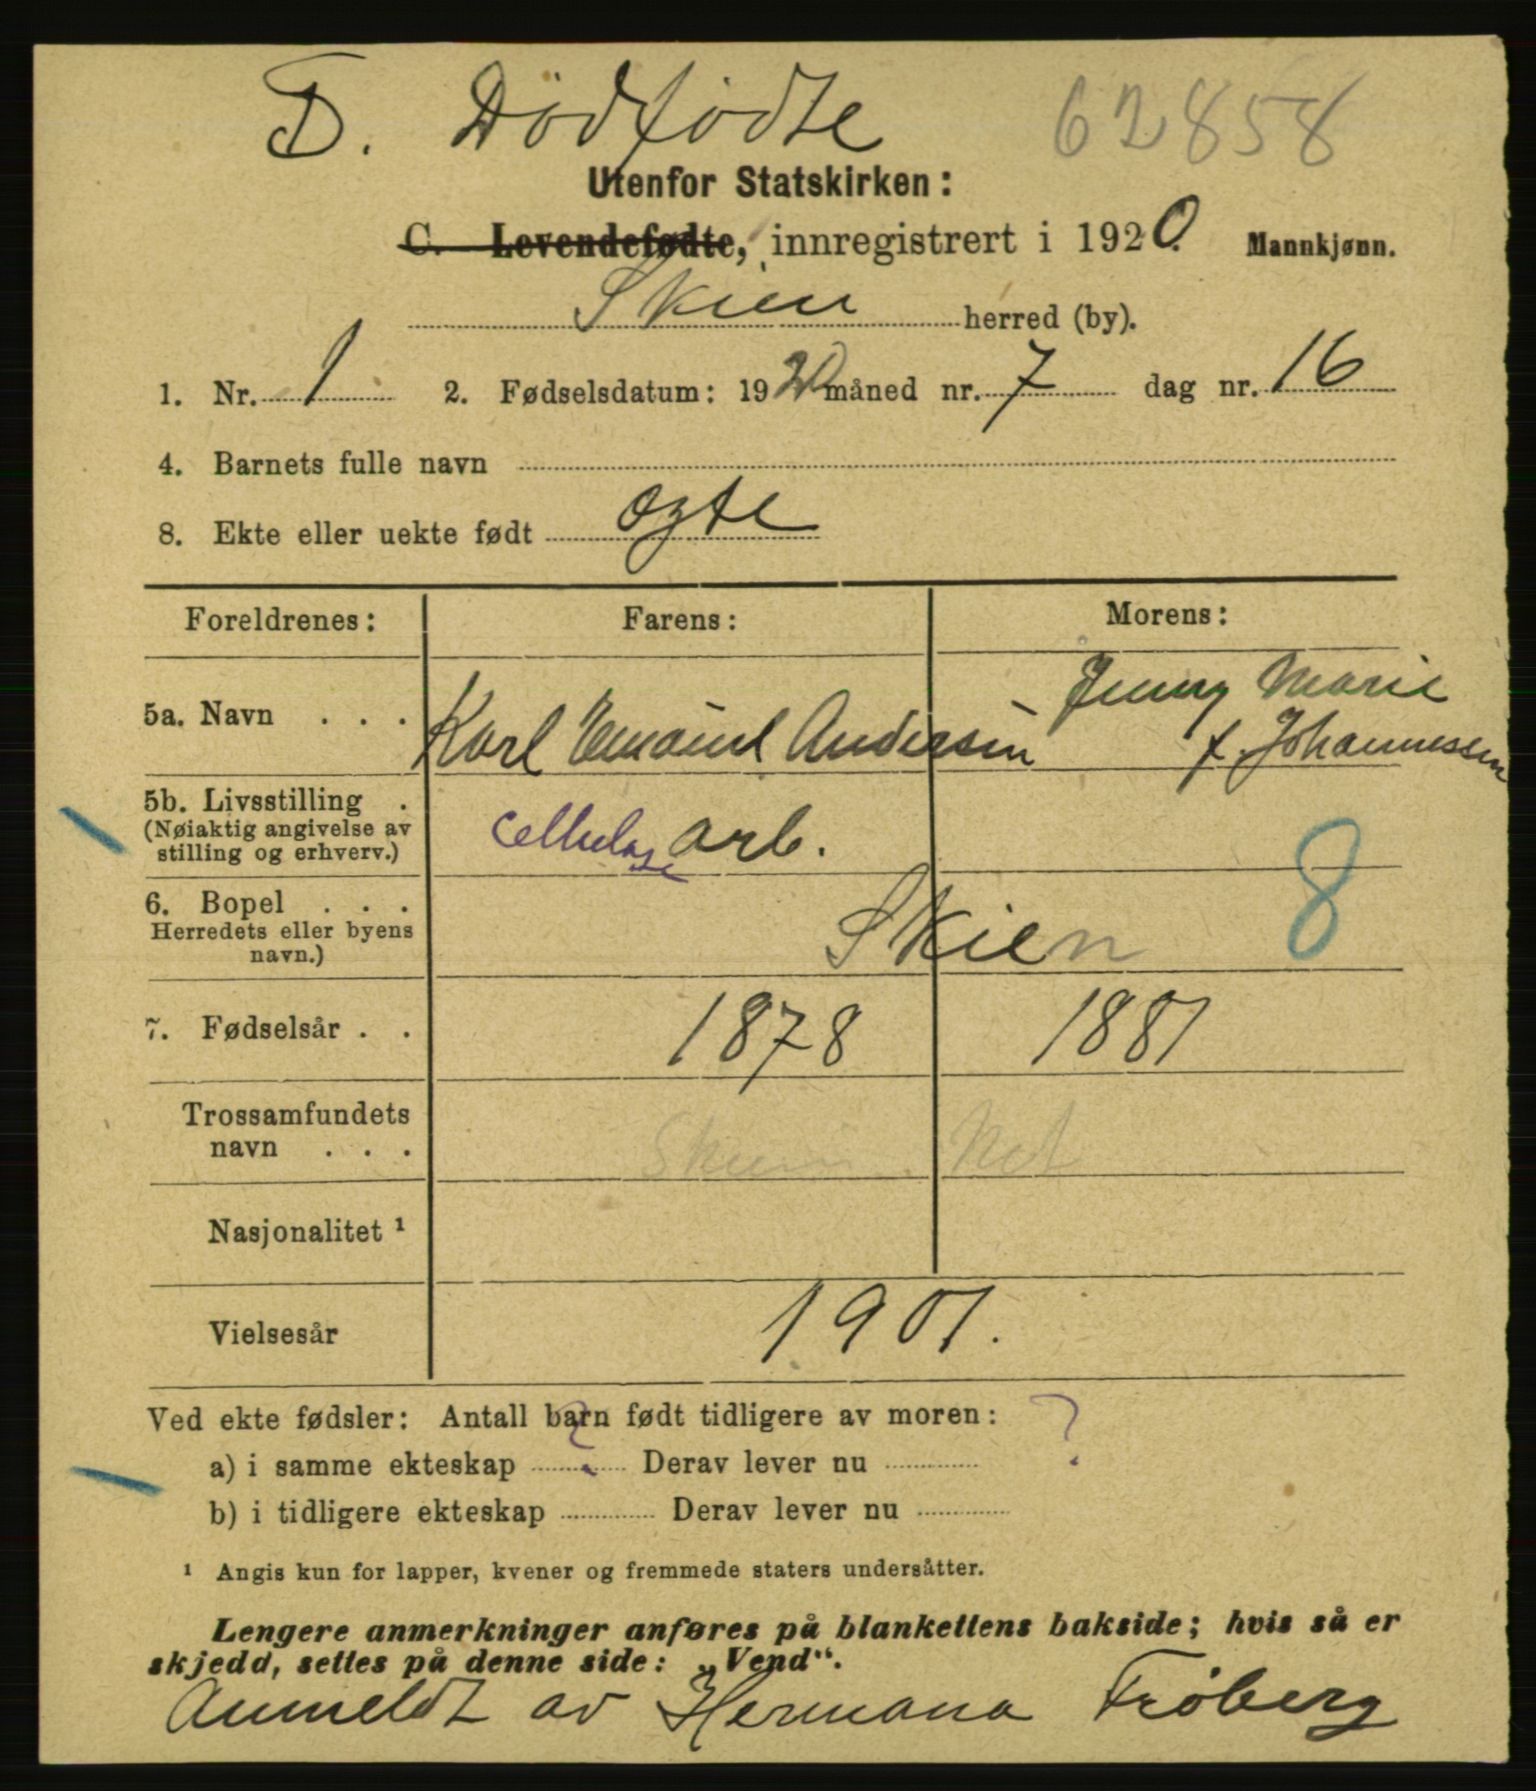 D. Dødfødte 62858
Utenfor Statskirken:
C. Levendefødte, innregistrert i 1920. Mannkjønn.
Skien herred (by).
1. Nr. 1 2. Fødselsdatum: 1920 måned nr. 7 dag nr. 16
4. Barnets fulle navn
8. Ekte eller uekte født
Foreldrenes: Farens: Morens:
Jenny Marie
5a. Navn . . . Karl Emanuel Andersen f. Johannessen
5b. Livsstilling .
(Nøiaktig angivelse av
stilling og erhverv.)
cellulose arb.
8
6. Bopel . . .
Herredets eller byens
navn.)
Skien
7. Fødselsår . . 1878 1881
Trossamfundets
navn . . .
Nasjonalitet ¹
Vielsesår 1901.
Ved ekte fødsler: Antall barn født tidligere av moren: ?
a) i samme ekteskap ? Derav lever nu
b) i tidligere ekteskap Derav lever nu
¹ Angis kun for lapper, kvener og fremmede staters undersåtter.
Lengere anmerkninger anføres på blankettens bakside; hvis så er
skjedd, settes på denne side: „Vend“.
Anmeldt av Hermana Frøberg